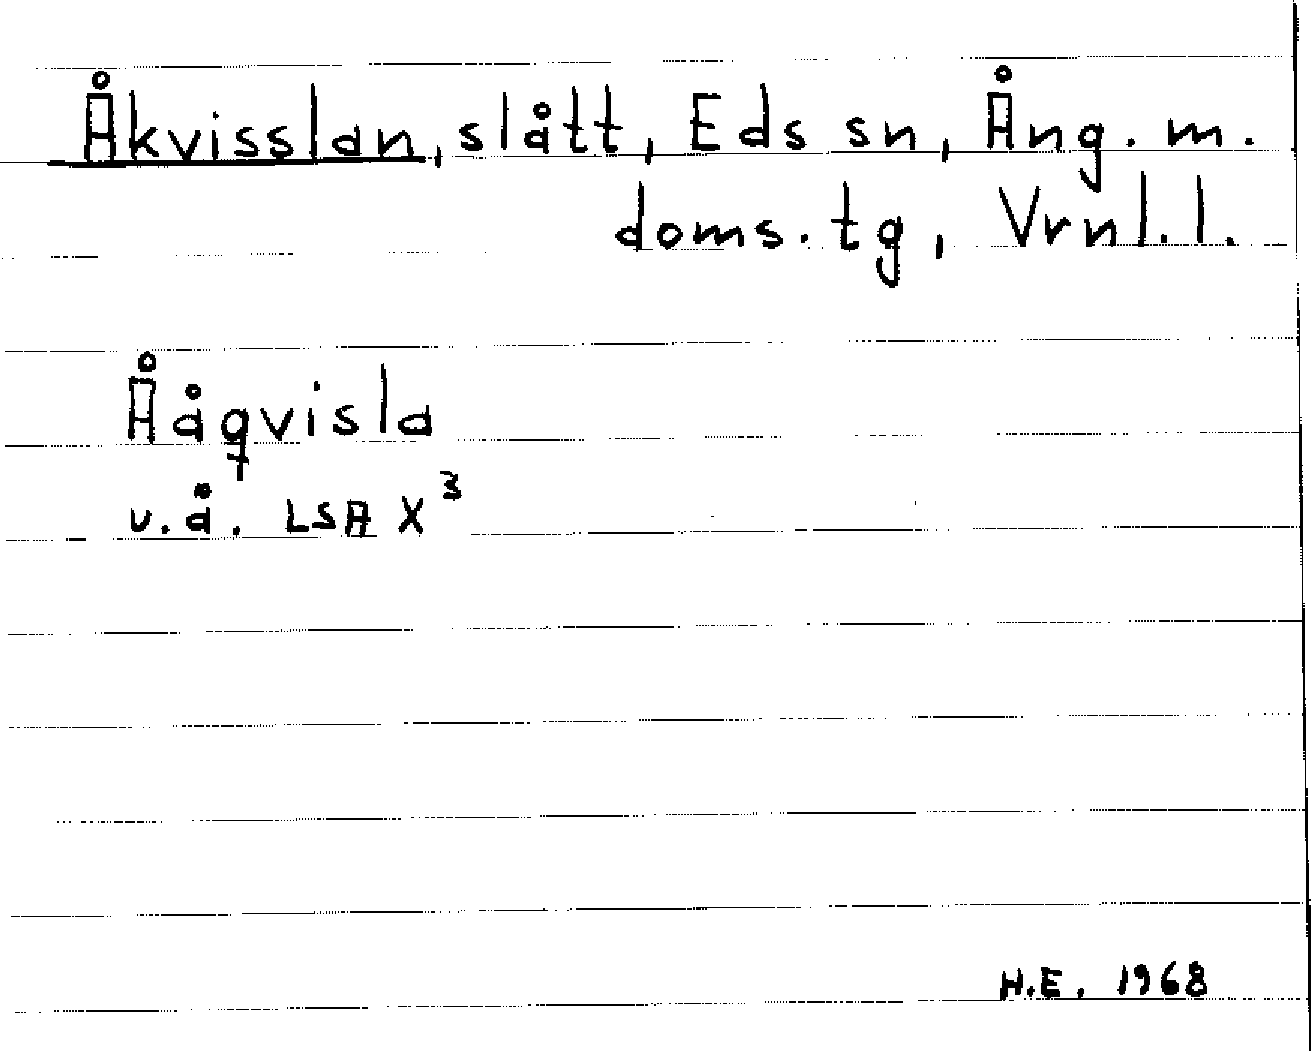 Åkvisslan, slått, Eds sn, Ång. m.
doms. tg, Vrnl. l.
Åågqvisla
u.å. LSA X³
H.E. 1968